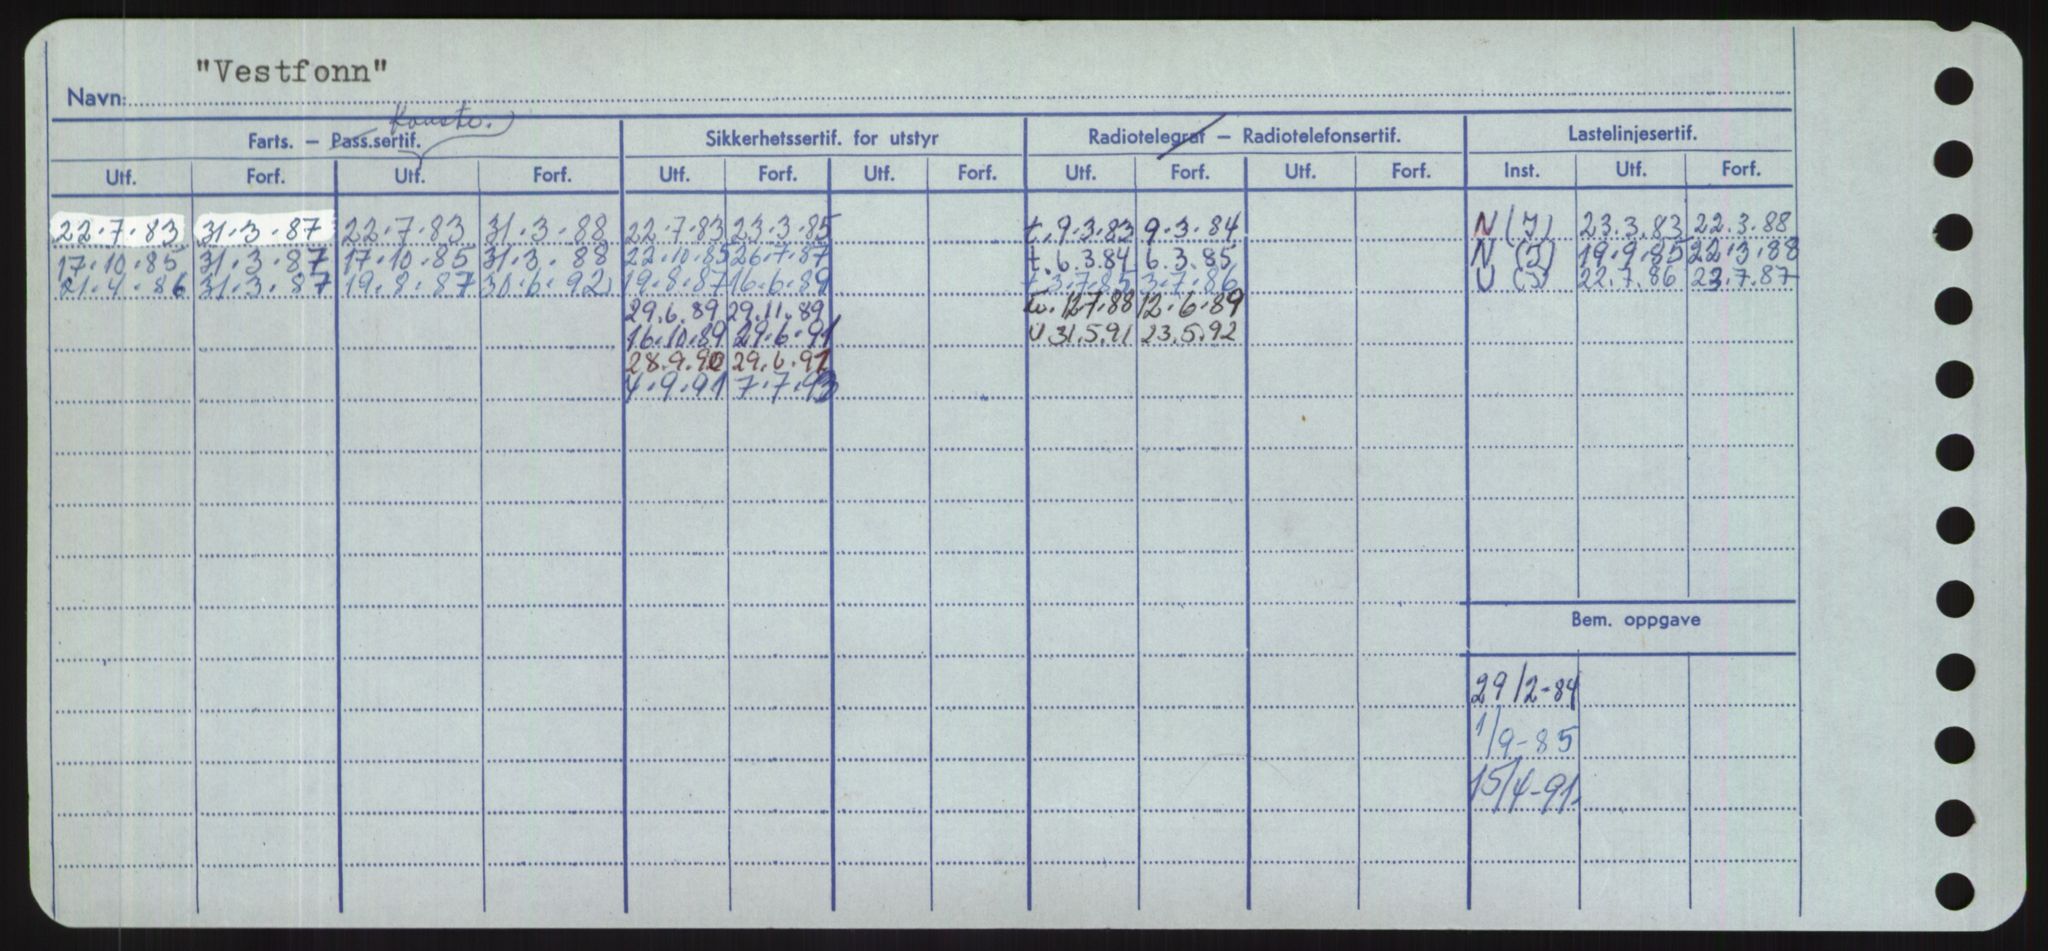 "Vestfonn"
Navn:
Konstr.
Farts. — Pass.sertif. Sikkerhetssertif. for utstyr Radiotelegraf — Radiotelefonsertif. Lastelinjesertif.
Utf. Forf. Utf. Forf. Utf. Forf. Utf. Forf. Utf. Forf. Utf. Forf. Inst. Utf. Forf.
22.7.83 31.3.87 22.7.83 31.3.88 22.7.83 23.3.85 t. 9.3.83 9.3.84 N (J) 23.3.83 22.3.88
17.10.85 31.3.87 17.10.85 31.3.88 22.10.85 26.7.87 t. 6.3.84 6.3.85 N (J) 19.9.85 22.3.88
21.4.86 31.3.87 19.8.87 30.6.92 19.8.87 16.6.89 t 3.7.85 3.7.86 U (J) 22.7.86 23.7.87
29.6.89 29.11.89 12.7.88 12.6.89
16.10.89 29.6.91 U 31.5.91 23.5.92
28.9.90 29.6.91
4.9.91 7.7.93
Bem. oppgave
29/2-84
1/9-85
15/4-91